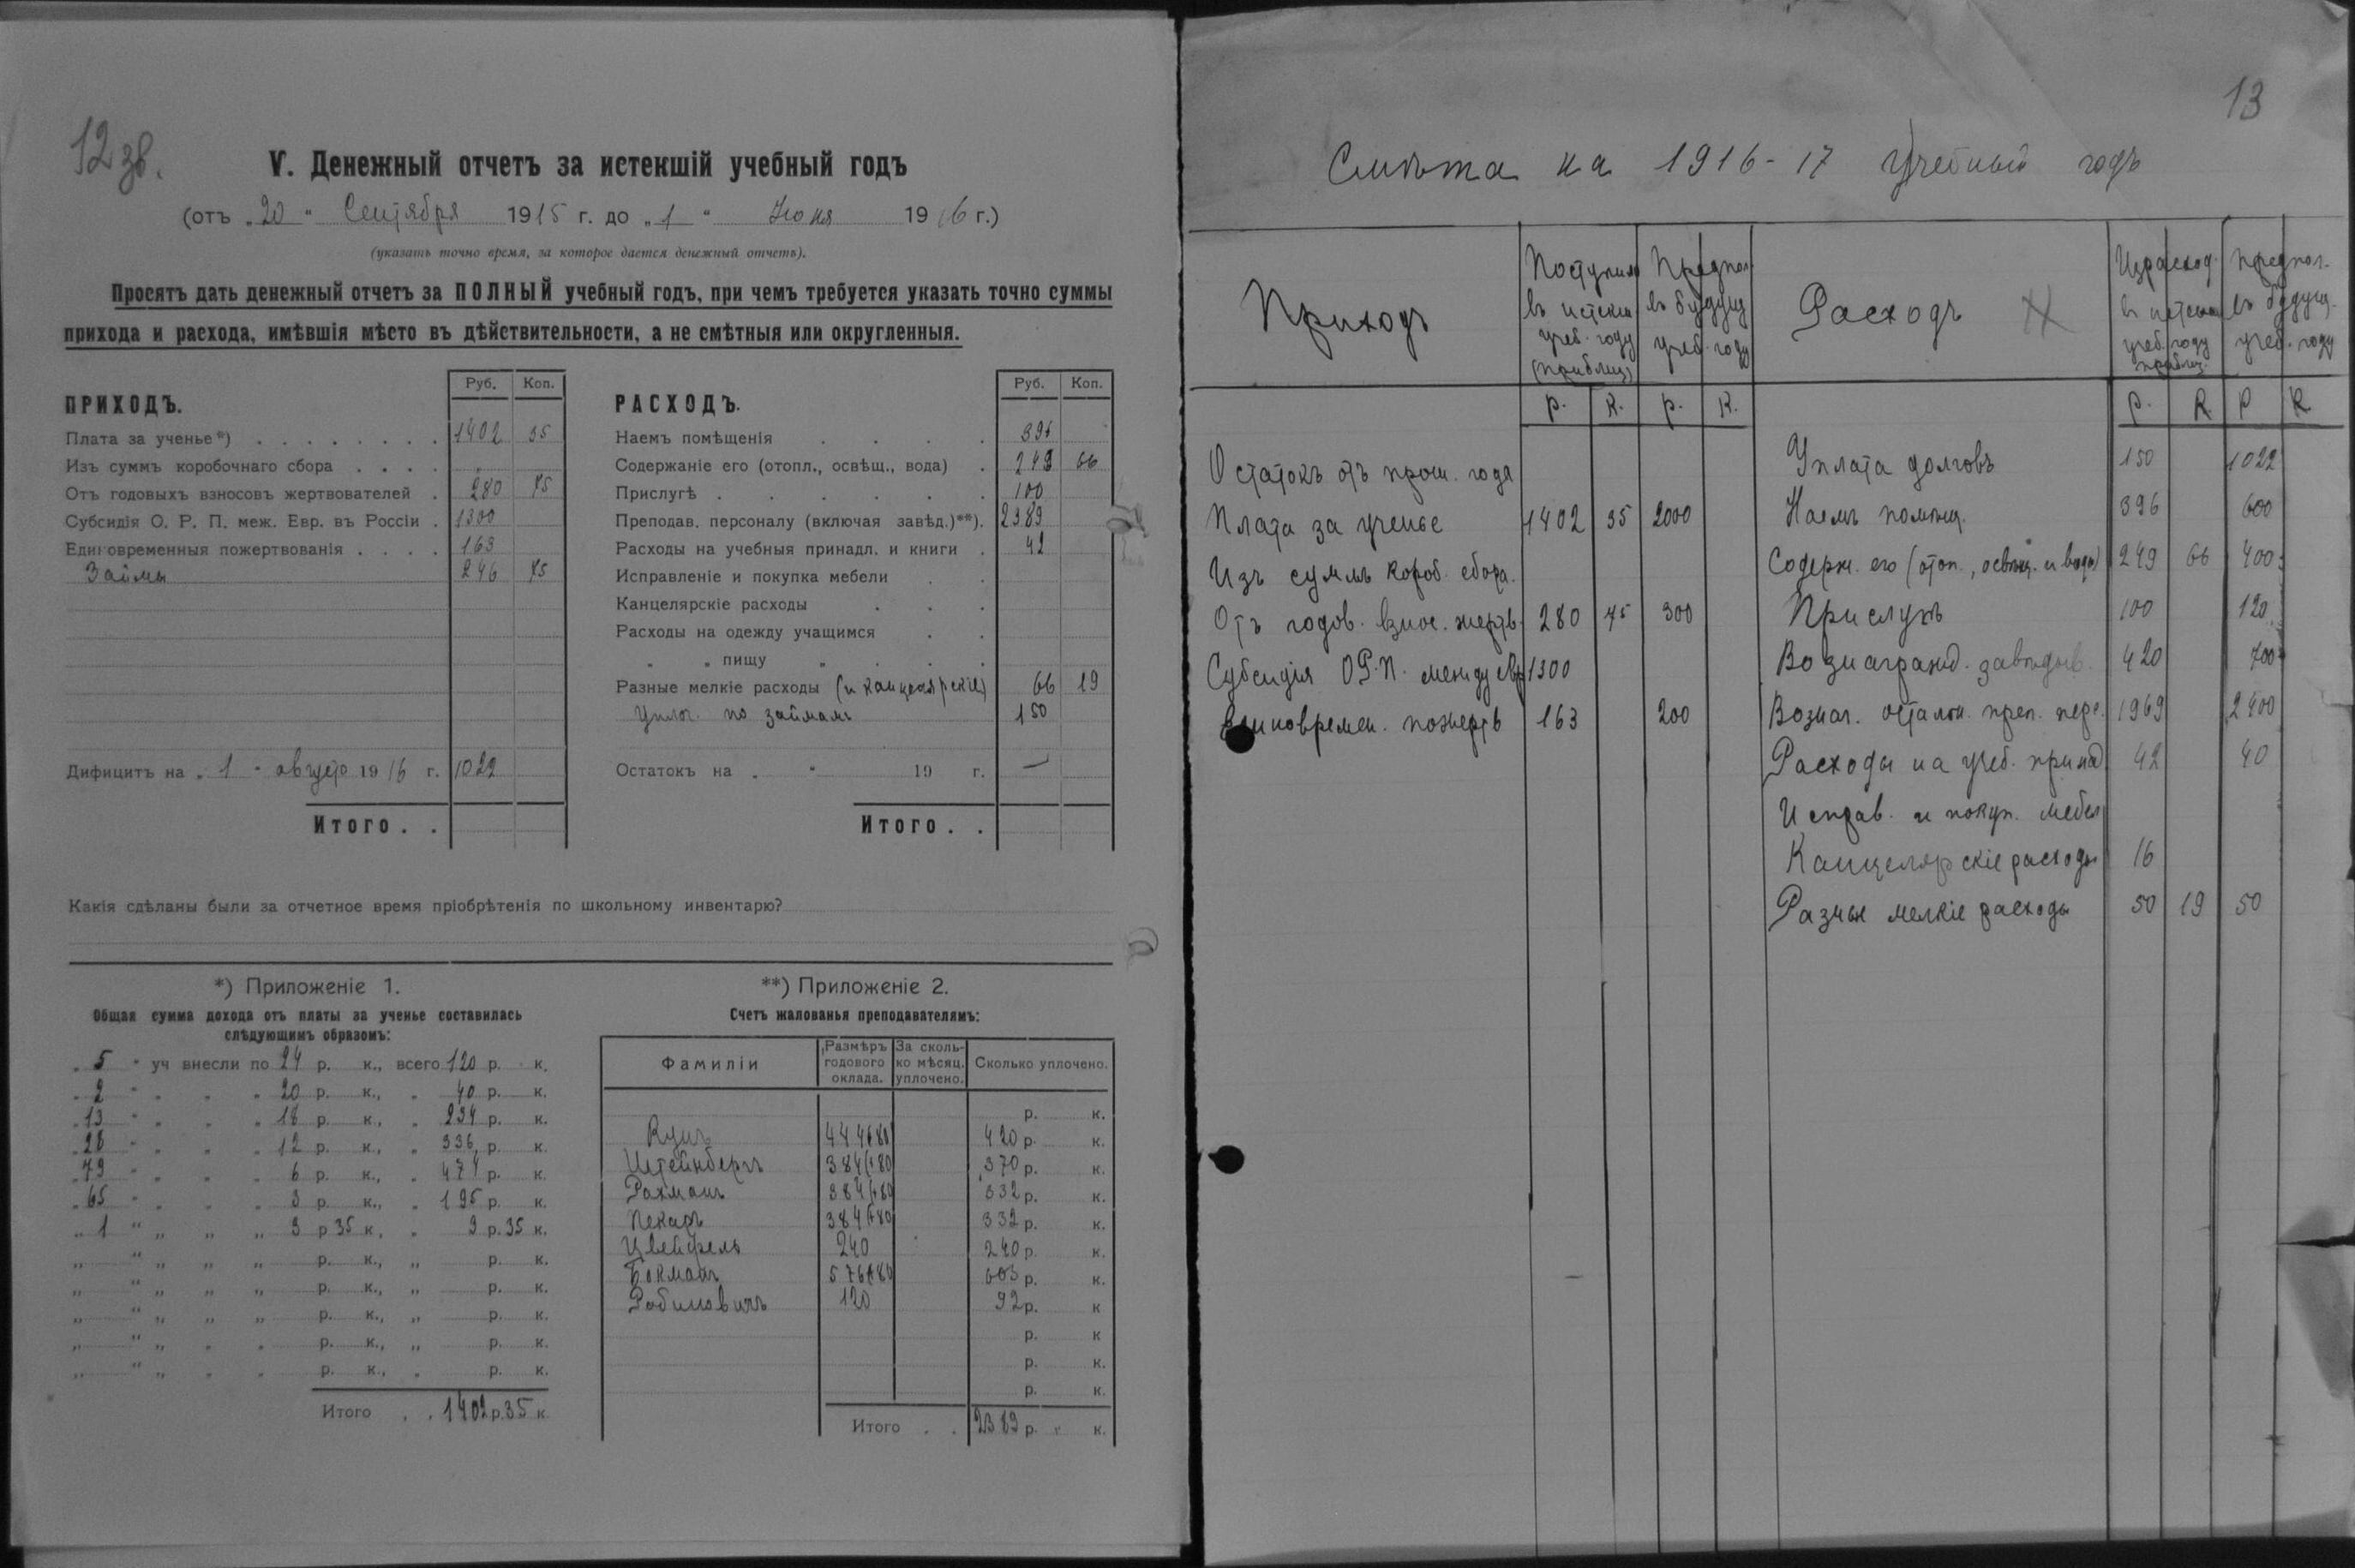 12 зв.
V. Денежный отчетъ за истекшій учебный годъ
(отъ „20“ Сентября 1915 г. до „1“ Июня 1916 г.)
(указать точно время, за которое дается денежный отчетъ).
Просятъ дать денежный отчетъ за ПОЛНЫЙ учебный годъ, при чемъ требуется указать точно суммы
прихода и расхода, имѣвшія мѣсто въ дѣйствительности, а не смѣтныя или округленныя.
Руб. Коп.
ПРИХОДЪ.
Плата за ученье*) . . . . . . . . 1402 35
Изъ суммъ коробочнаго сбора . . . .
Отъ годовыхъ взносовъ жертвователей . 280 75
Субсидія О. Р. П. меж. Евр. въ Россіи . 1300
Единовременныя пожертвованія . . . . 163
Займы 246 75
Дифицитъ на „1“ августа 1916 г. 1022
Итого . .
Руб. Коп.
РАСХОДЪ.
Наемъ помѣщенія . . . . 396
Содержаніе его (отопл., освѣщ., вода) . 249 66
Прислугѣ . . . . . . 100
Преподав. персоналу (включая завѣд.)**). 2389
Расходы на учебныя принадл. и книги . 42
Исправленіе и покупка мебели . .
Канцелярскіе расходы . . .
Расходы на одежду учащимся . .
„ „ пищу „ . . .
Разные мелкіе расходы (и канцелярскіе) 66 19
Уплоч. по займамъ 150
Остатокъ на „ “ 19 г. —
Итого . .
Какія сдѣланы были за отчетное время пріобрѣтенія по школьному инвентарю?
*) Приложеніе 1.
Общая сумма дохода отъ платы за ученье составилась
слѣдующимъ образомъ:
„5“ уч внесли по 24 р. к., всего 120 р. к.
„2“ „ „ „ 20 р. к., „ 40 р. к.
„13“ „ „ „ 18 р. к., „ 234 р. к.
„28“ „ „ „ 12 р. к., „ 336 р. к.
„79“ „ „ „ 6 р. к., „ 474 р. к.
„65“ „ „ „ 3 р. к., „ 195 р. к.
„1“ „ „ „ 3 р 35 к., „ 3 р. 35 к.
„ “ „ „ „ р. к., „ р. к.
„ “ „ „ „ р. к., „ р. к.
„ “ „ „ „ р. к., „ р. к.
„ “ „ „ „ р. к., „ р. к.
„ “ „ „ „ р. к., „ р. к.
Итого . . 1402 р. 35 к.
**) Приложеніе 2.
Счетъ жалованья преподавателямъ:
Фамиліи
Размѣръ годового оклада.
За сколько мѣсяц. уплочено.
Сколько уплочено.
р. к.
444+80 420 р. к.
Штейнбергъ 384+80 370 р. к.
Рахманъ 384+80 332 р. к.
Пекарь 384+80 332 р. к.
Цвейфель 240 240 р. к.
Бокманъ 576+80 603 р. к.
Рабиновичъ 120 92 р. к
р. к
р. к.
р. к.
Итого . . 2389 р. к.
13
Смѣта на 1916-17 учебный годъ
Приходъ
Поступило въ истекш. учеб. году (приблиз.)
Предпол. въ будущ. учеб. году
Р. К. Р. К.
Остатокъ отъ прош. года
Плата за ученье 1402 35 2000
Изъ суммъ короб. сбора.
Отъ годов. взнос. жертв. 280 75 300
Субсидія ОР.П. между Евр 1300
Единовремен. пожертв 163 200
Расходъ
Израсход. въ истекш. учеб. году приблиз.
Предпол. въ будущ. учеб. году
Р. К. Р К
Уплата долговъ 150 1022
Наемъ помѣщ. 396 600
Содерж. его (отоп., освѣщ. и вода) 249 66 400
Прислугѣ 100 120
Вознагражд. завѣдыв. 420 700
Вознаг. остальн. преп. перс. 1969 2400
Расходы на учеб. принад 42 40
Исправ. и покуп. мебел
Канцелярскіе расходы 16
Разные мелкіе расходы 50 19 50